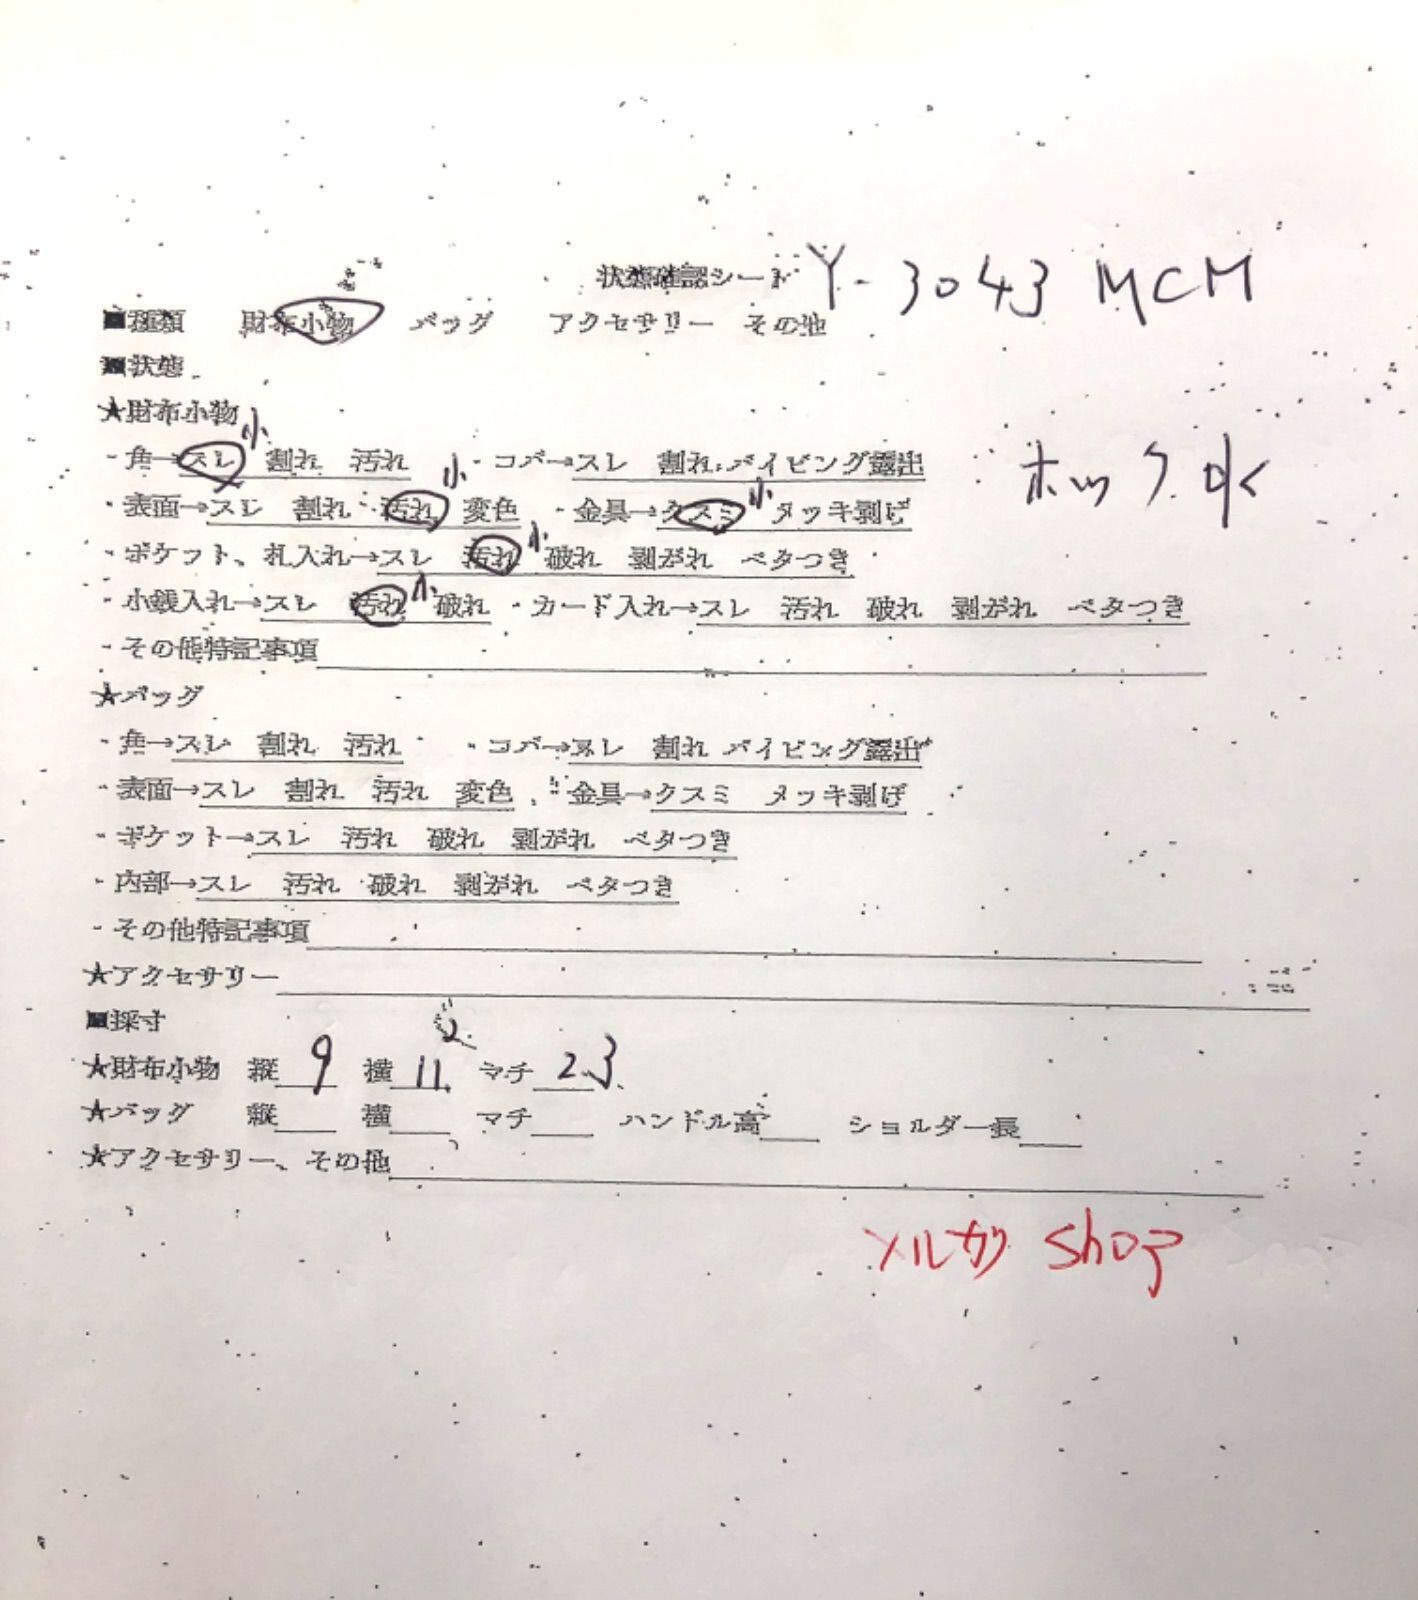 状態確認シート Y-3043 MCM
■種類 財布小物 バッグ アクセサリー その他
■状態
★財布小物
・角→スレ 小 割れ 汚れ ・コバ→スレ 割れ パイピング露出
ホック OK
・表面→スレ 割れ 汚れ 小 変色 ・金具→クスミ 小 メッキ剥げ
・ポケット、札入れ→スレ 汚れ 小 破れ 剥がれ ベタつき
・小銭入れ→スレ 汚れ 小 破れ ・カード入れ→スレ 汚れ 破れ 剥がれ ベタつき
・その他特記事項
★バッグ
・角→スレ 割れ 汚れ ・コバ→スレ 割れ パイピング露出
・表面→スレ 割れ 汚れ 変色 ・金具→クスミ メッキ剥げ
・ポケット→スレ 汚れ 破れ 剥がれ ベタつき
・内部→スレ 汚れ 破れ 剥がれ ベタつき
・その他特記事項
★アクセサリー
■採寸
★財布小物 縦 9 横 11. マチ 2.3
★バッグ 縦 横 マチ ハンドル高 ショルダー長
★アクセサリー、その他
メルカリ shop